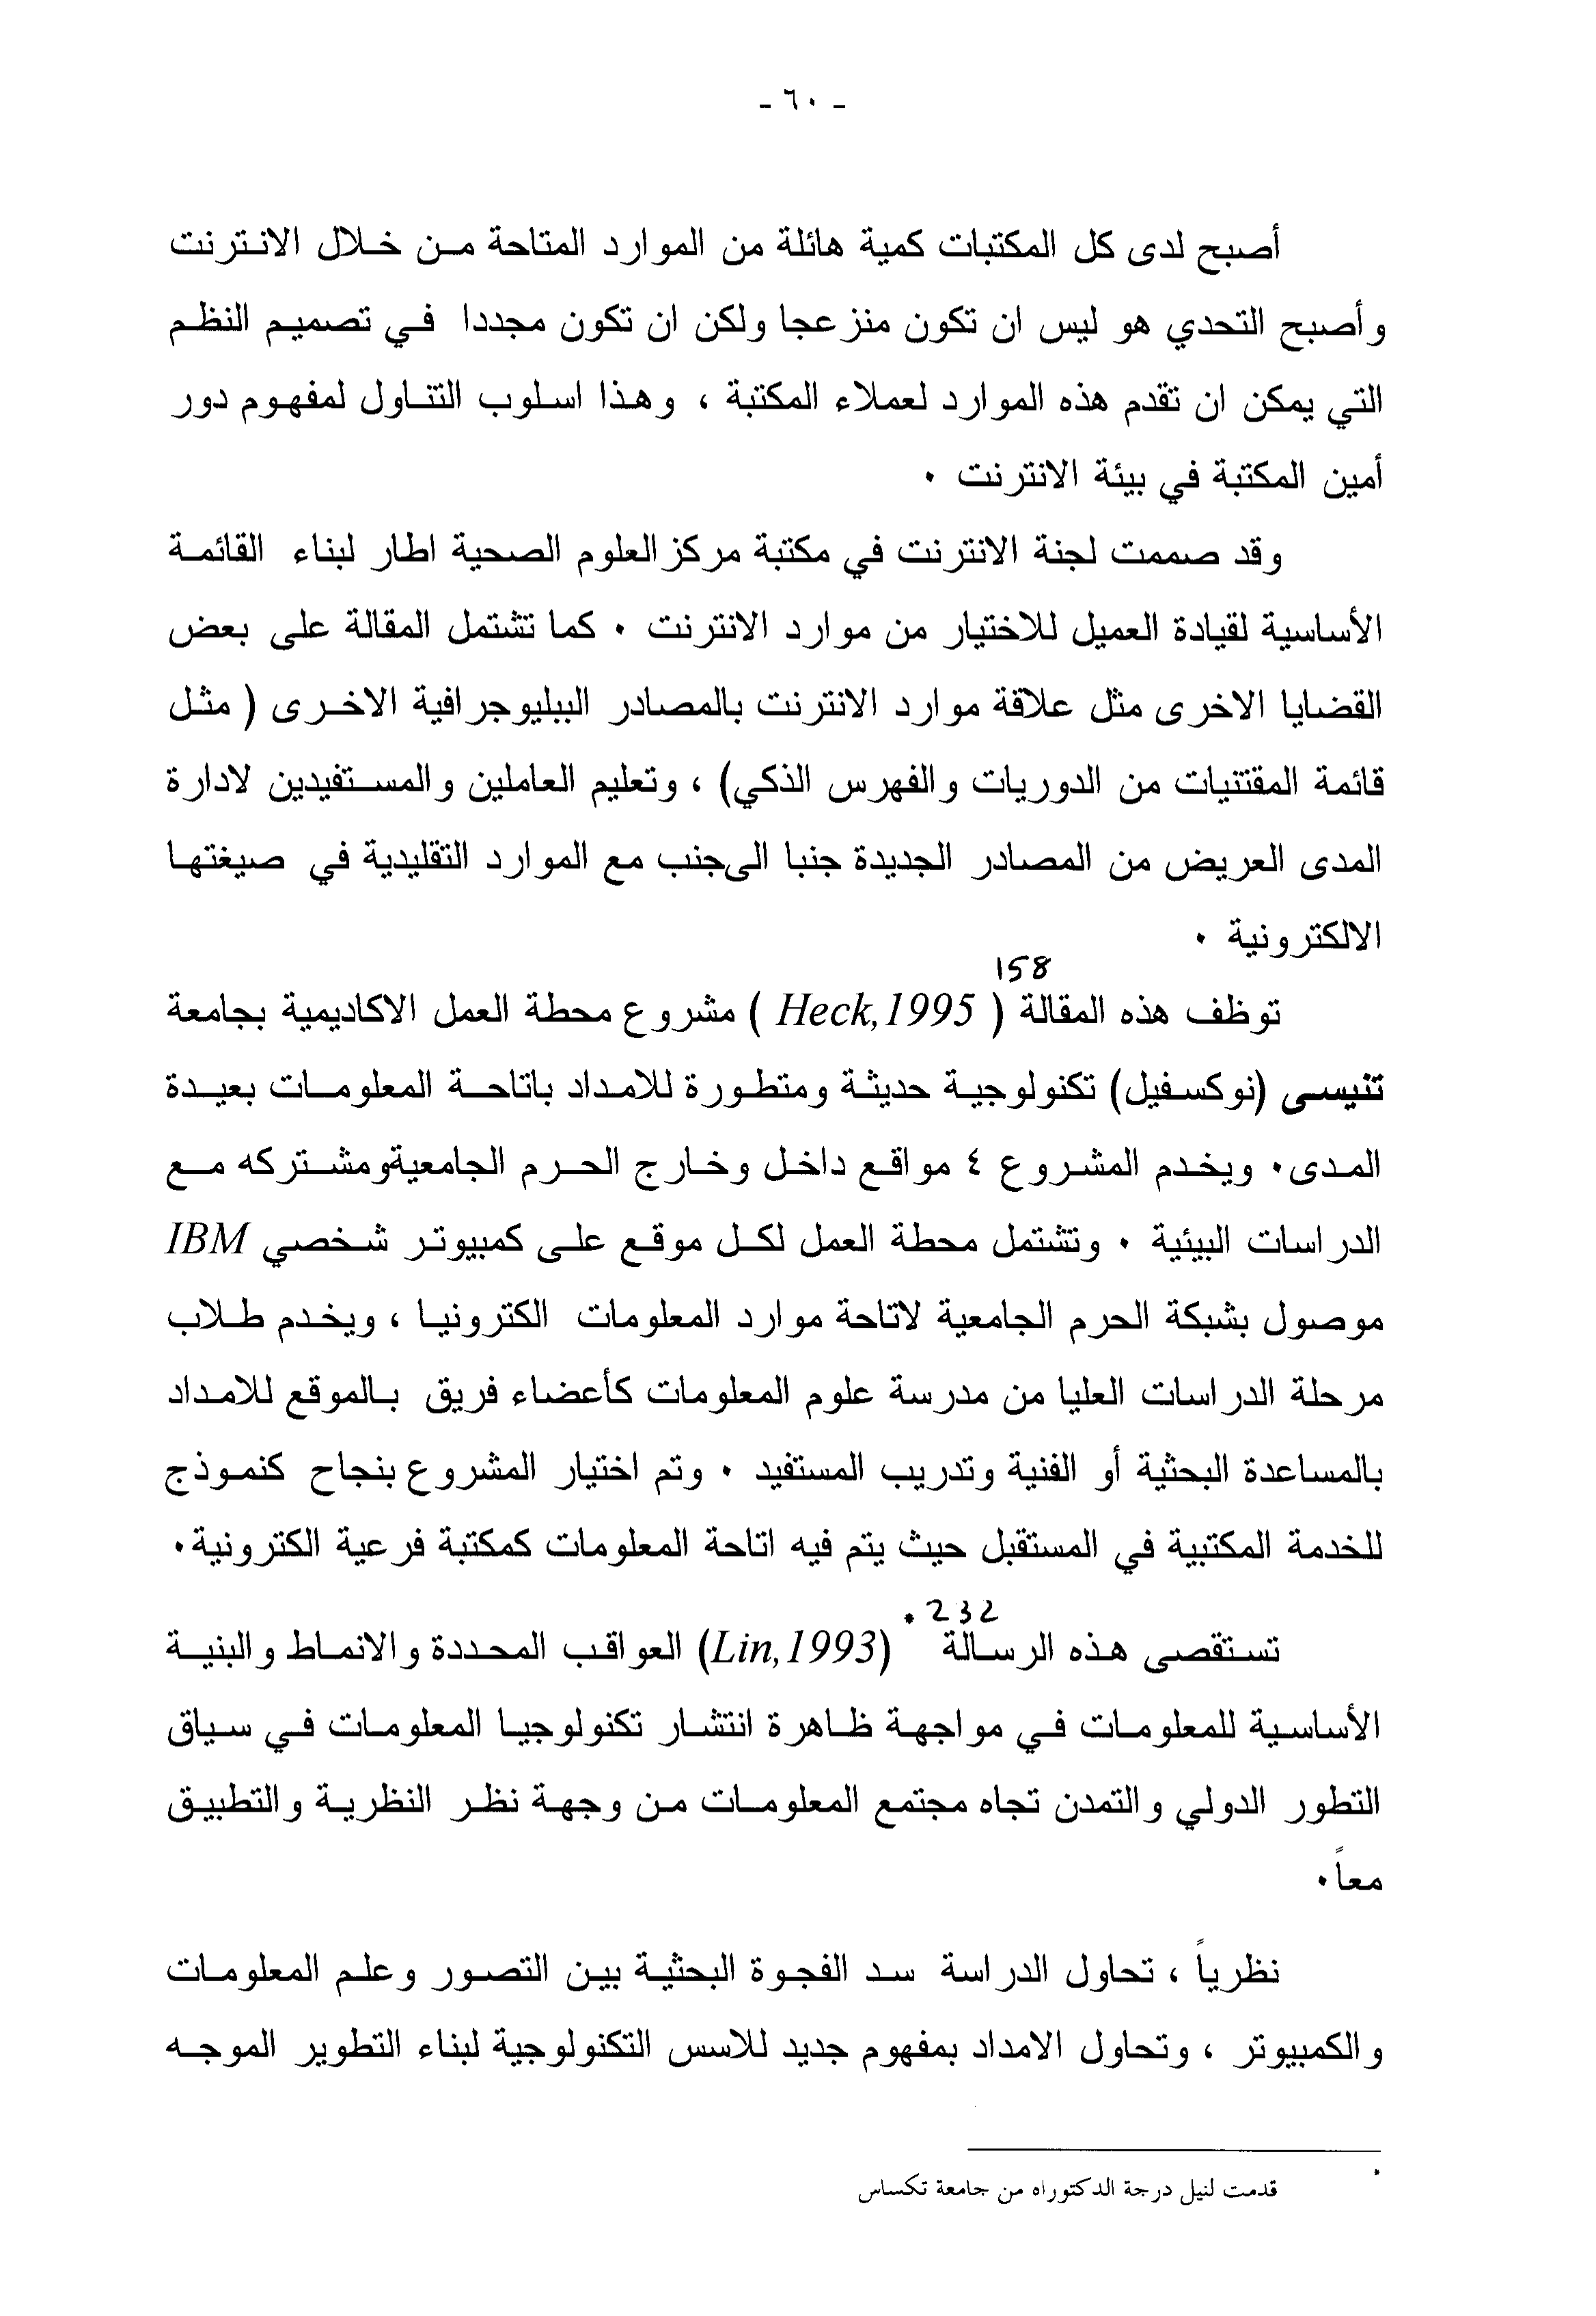 - ٦٠ -
أصبح لدى كل المكتبات كمية هائلة من الموارد المتاحة من خلال الانترنت
وأصبح التحدي هو ليس ان تكون منزعجا ولكن ان تكون مجددا في تصميم النظم
التي يمكن ان تقدم هذه الموارد لعملاء المكتبة ، وهذا اسلوب التناول لمفهوم دور
أمين المكتبة في بيئة الانترنت ٠
وقد صممت لجنة الانترنت في مكتبة مركز العلوم الصحية اطار لبناء القائمة
الأساسية لقيادة العميل للاختيار من موارد الانترنت ٠ كما تشتمل المقالة على بعض
القضايا الاخرى مثل علاقة موارد الانترنت بالمصادر الببليوجرافية الاخرى ( مثل
قائمة المقتنيات من الدوريات والفهرس الذكي) ، وتعليم العاملين والمستفيدين لادارة
المدى العريض من المصادر الجديدة جنبا الى جنب مع الموارد التقليدية في صيغتها
الالكترونية ٠
158
توظف هذه المقالة ( Heck,1995 ) مشروع محطة العمل الاكاديمية بجامعة
تنيسى (نوكسفيل) تكنولوجية حديثة ومتطورة للامداد باتاحة المعلومات بعيدة
المدى٠ ويخدم المشروع ٤ مواقع داخل وخارج الحرم الجامعية ومشتركه مع
الدراسات البيئية ٠ وتشتمل محطة العمل لكل موقع على كمبيوتر شخصي IBM
موصول بشبكة الحرم الجامعية لاتاحة موارد المعلومات الكترونيا ، ويخدم طلاب
مرحلة الدراسات العليا من مدرسة علوم المعلومات كأعضاء فريق بالموقع للامداد
بالمساعدة البحثية أو الفنية وتدريب المستفيد ٠ وتم اختيار المشروع بنجاح كنموذج
للخدمة المكتبية في المستقبل حيث يتم فيه اتاحة المعلومات كمكتبة فرعية الكترونية٠
232 *
تستقصى هذه الرسالة (Lin,1993) العواقب المحددة والانماط والبنية
الأساسية للمعلومات في مواجهة ظاهرة انتشار تكنولوجيا المعلومات في سياق
التطور الدولي والتمدن تجاه مجتمع المعلومات من وجهة نظر النظرية والتطبيق
معاً٠
نظرياً ، تحاول الدراسة سد الفجوة البحثية بين التصور وعلم المعلومات
والكمبيوتر ، وتحاول الامداد بمفهوم جديد للاسس التكنولوجية لبناء التطوير الموجه
* قدمت لنيل درجة الدكتوراه من جامعة تكساس